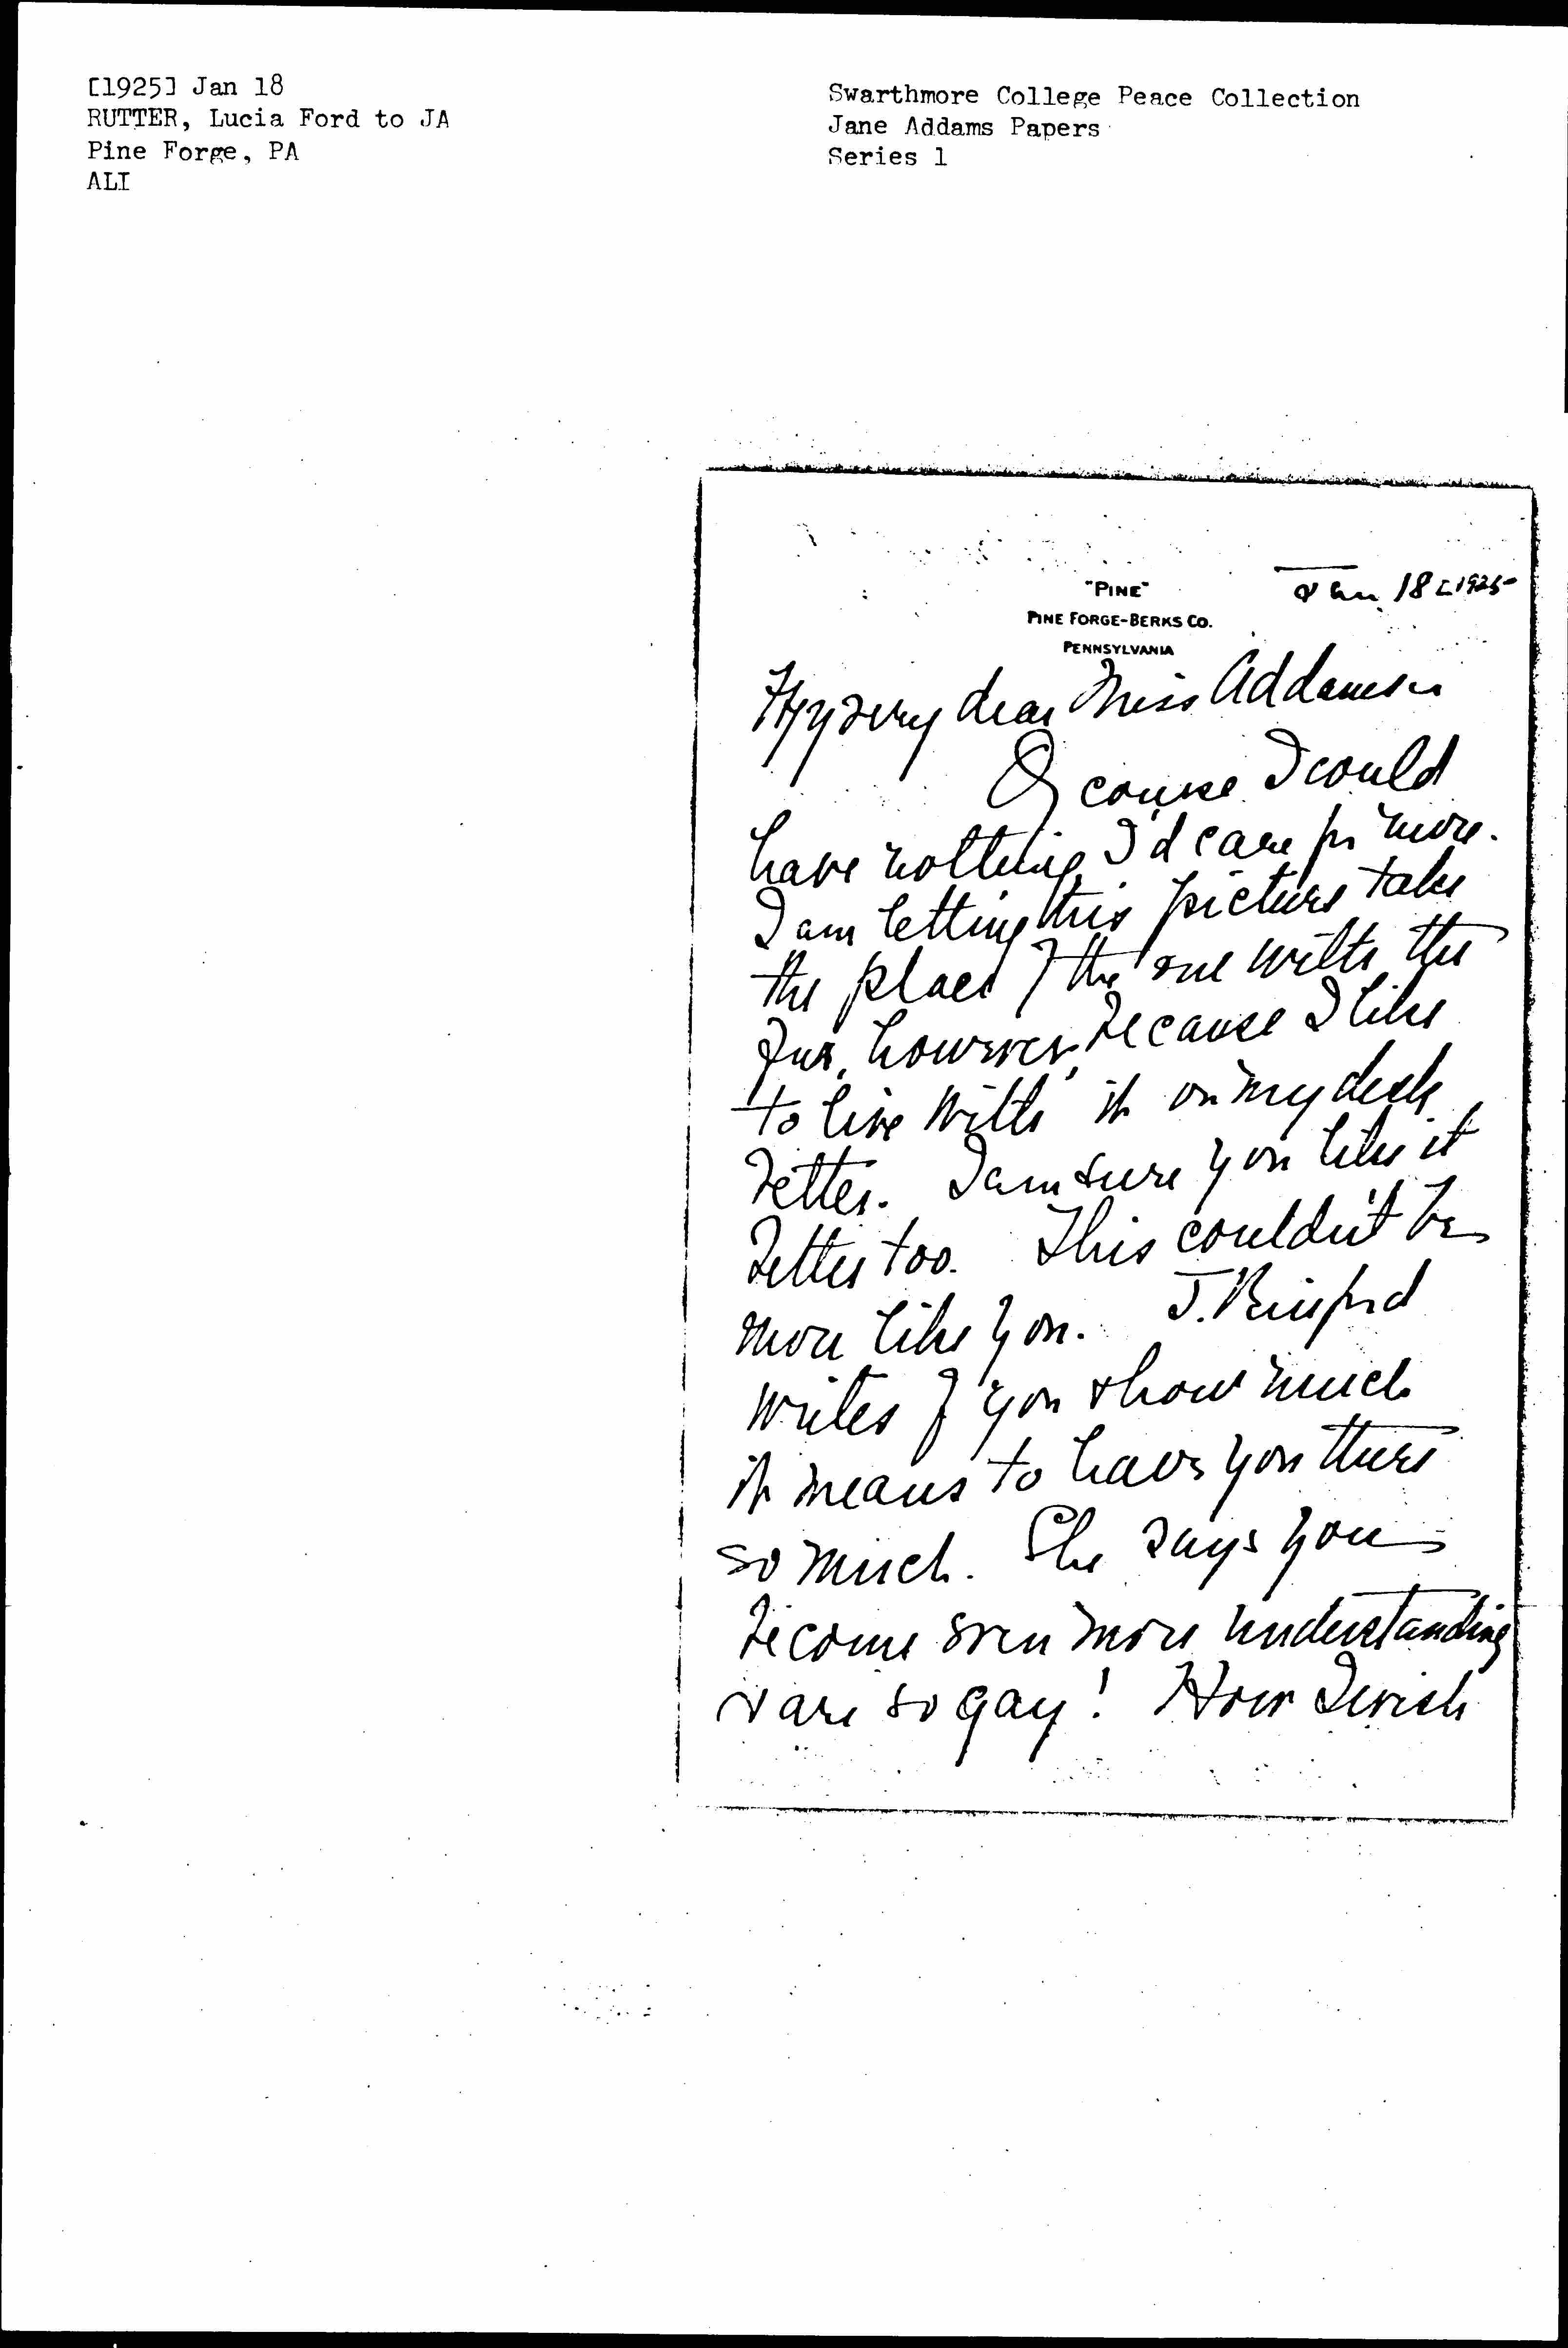 [1925] Jan 18
RUTTER, Lucia Ford to JA
Pine Forge, PA
ALI
Swarthmore College Peace Collection
Jane Addams Papers
Series 1
"PINE"
PINE FORGE-BERKS CO.
PENNSYLVANIA
Jan 18 [1925
My very dear Miss Addams
Of course I could
have nothing I'd care for more.
I am letting this picture take
the place of the one with the
fur, however, because I like
to live with it on my desk
better. I am sure you like it
better too. This couldn't be
more like you. J. Binford
writes of you & how much
it means to have you there
so much. She says you
become even more understanding
& are so gay! How I wish